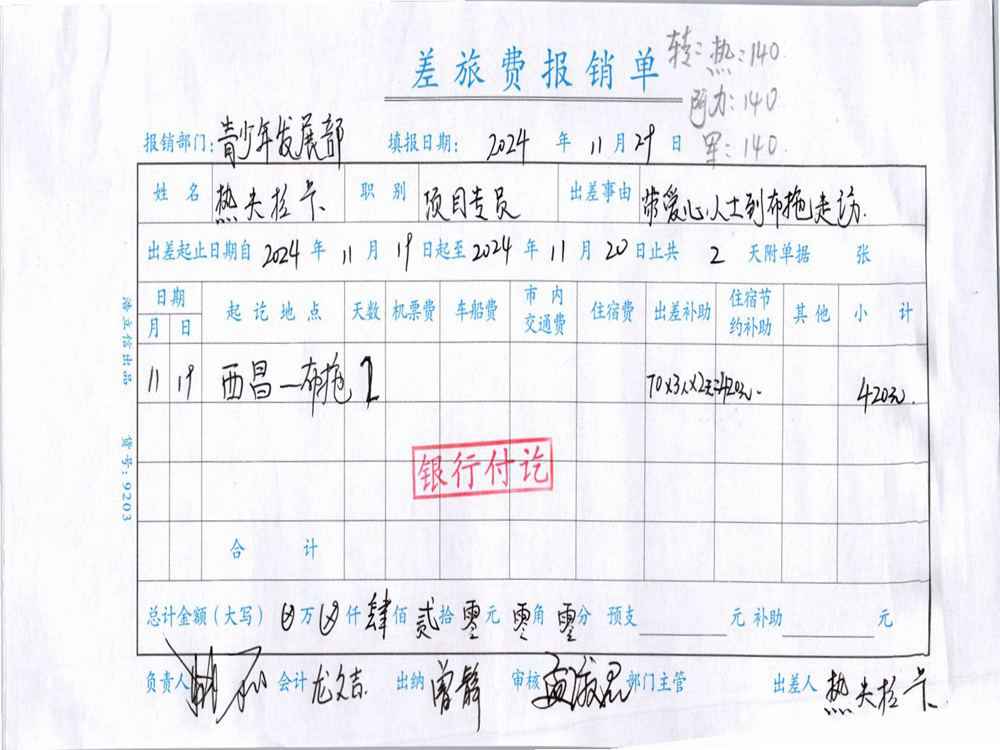 差旅费报销单
转:热:140.
阿力:140
军:140.
报销部门:青少年发展部 填报日期: 2024 年 11 月 29 日
姓 名 热夫拉卡 职 别 项目专员 出差事由 带爱心人士到布拖走访.
出差起止日期自 2024 年 11 月 19 日起至 2024 年 11 月 20 日止共 2 天附单据 张
日期 起 讫 地 点 天数 机票费 车船费 市 内 交通费 住宿费 出差补助 住宿节约补助 其 他 小 计
月 日
11 19 西昌—布拖 2 70×3人×2天=420元. 420元.
银行付讫
合 计
总计金额(大写) 万 仟 肆 佰 贰 拾 零 元 零 角 零 分 预支 元 补助 元
负责人 会计 龙文志 出纳 曾静 审核 部门主管 出差人 热夫拉卡
货号:9203